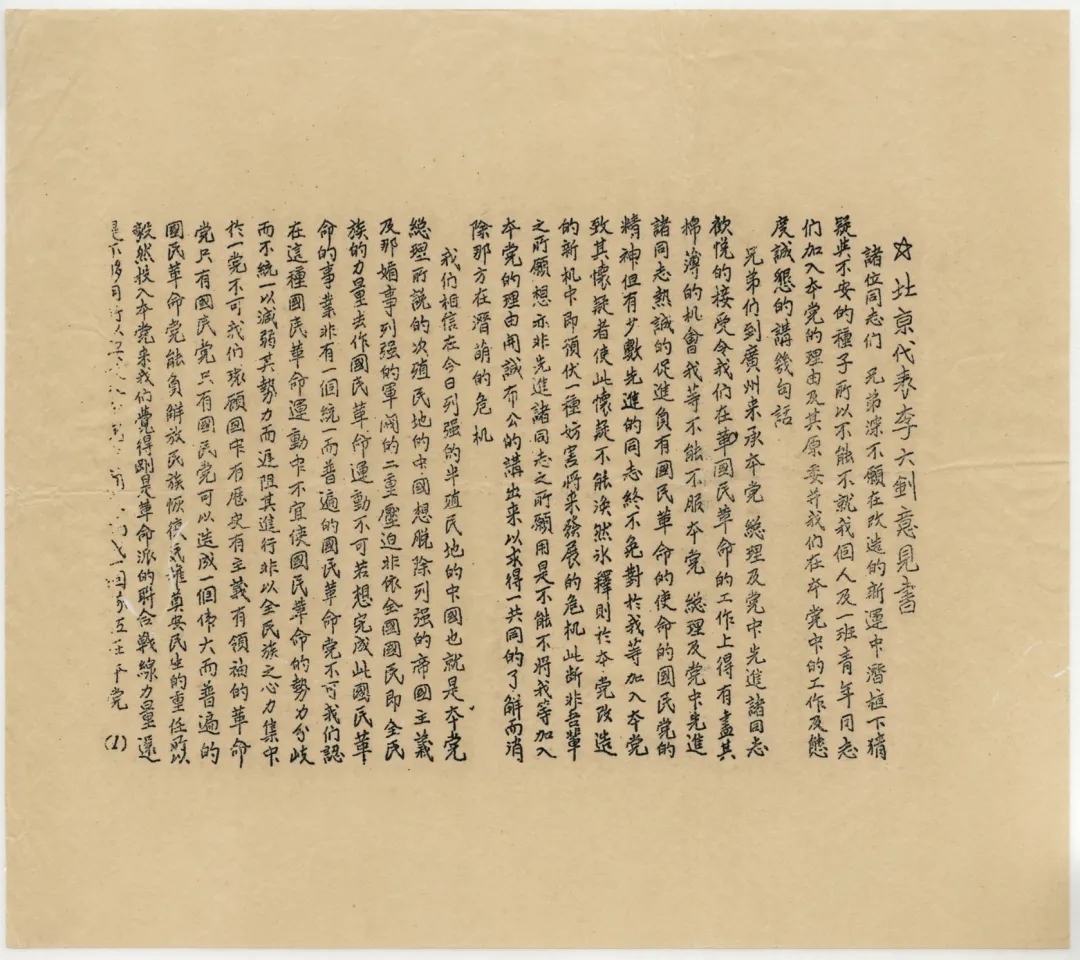 ☆北京代表李大釗意見書
諸位同志们 兄弟深不願在改造的新運中潛植下猜
疑與不安的種子所以不能不就我個人及一班青年同志
们加入本党的理由及其原委并我们在本党中的工作及態
度誠懇的講幾句話
兄弟们到廣州来承本党 總理及党中先進諸同志
歡悅的接受令我们在國民革命的工作上得有盡其
棉薄的机會我等不能不服本党 總理及党中先進
諸同志熱誠的促進負有國民革命的使命的國民党的
精神但有少數先進的同志終不免對於我等加入本党
致其懷疑者使此懷疑不能渙然氷釋則於本党改造
的新机中即預伏一種妨害將来發展的危机此断非吾輩
之所願想亦非先進諸同志之所願用是不能不將我等加入
本党的理由開誠布公的講出来以求得一共同的了解而消
除那方在潛萌的危机
我们相信在今日列强的半殖民地的中國也就是本党
總理所説的次殖民地的中國想脱除列强的帝國主義
及那媚事列强的軍閥的二重壓迫非依全國國民即全民
族的力量去作國民革命運動不可若想完成此國民革
命的事業非有一個統一而普遍的國民革命党不可我们認
在這種國民革命運動中不宜使國民革命的勢力分歧
而不統一以減弱其勢力而遲阻其進行非以全民族之心力集中
於一党不可我们環顧國中有歷史有主義有領袖的革命
党只有國民党只有國民党可以造成一個偉大而普遍的
國民革命党能負解放民族恢復民權奠安民生的重任所以
毅然投入本党来我们覺得剛是革命派的聯合戰線力量還
是不够用所以
(1)